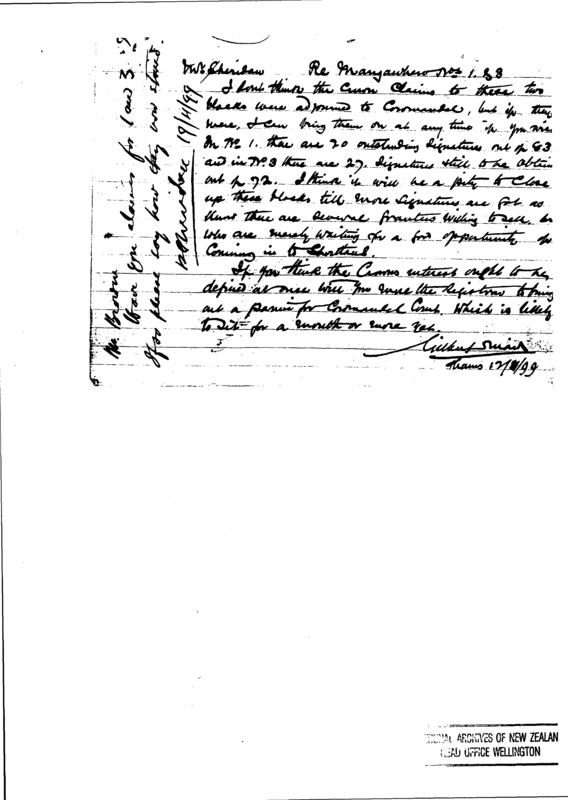 Mr Sheridan Re Mangawhero Nos 1. & 3
I dont think the Crown Claims to these two
blocks were adjourned to Coromandel, but if they
were, I can bring them on at any time if you wish
In No. 1. there are 20 outstanding Signatures out of 83
and in No. 3 there are 27. Signatures still to be obtain
out of 72. I think it will be a pity to Close
up these blocks till more Signatures are got as
there are Several Grantees Willing to sell,
who are merely waiting for a opportunity of
Coming in to Shortland.
If you think the Crowns interest ought to be
defined at once will you the Registrar to bring
out a panui for Coromandel Court, which is likely
to sit for a month or more yet.
Gilbert Mair
Thames 12/99
Mr Brown
Have you claims for 1 and 3.
If so please say how they now stand.
19/11/99
ARCHIVES OF NEW ZEALAN
HEAD OFFICE WELLINGTON